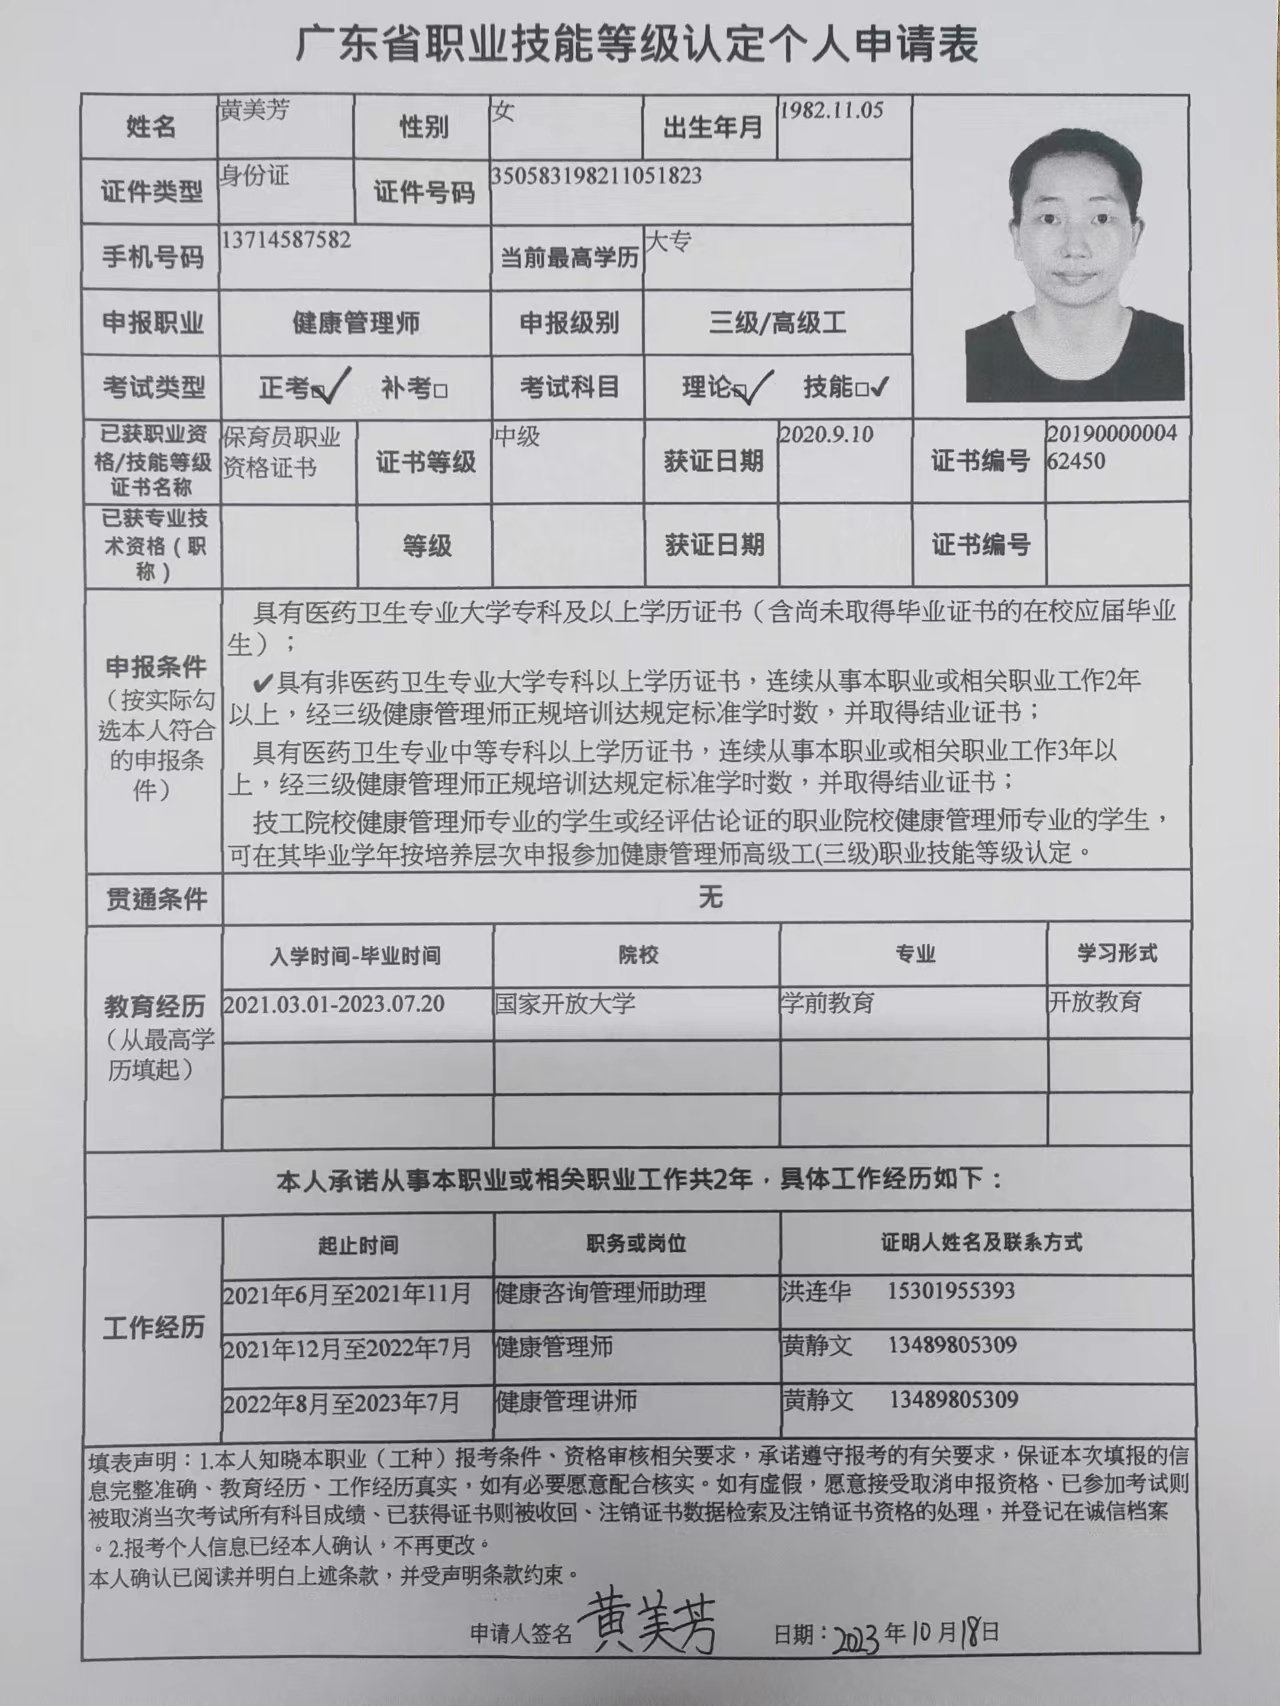 广东省职业技能等级认定个人申请表
姓名 黄美芳 性别 女 出生年月 1982.11.05
证件类型 身份证 证件号码 350583198211051823
手机号码 13714587582 当前最高学历 大专
申报职业 健康管理师 申报级别 三级/高级工
考试类型 正考□✓ 补考□ 考试科目 理论□✓ 技能□✓
已获职业资格/技能等级证书名称 保育员职业资格证书 证书等级 中级 获证日期 2020.9.10 证书编号 2019000000462450
已获专业技术资格（职称） 等级 获证日期 证书编号
申报条件
（按实际勾选本人符合的申报条件）
具有医药卫生专业大学专科及以上学历证书（含尚未取得毕业证书的在校应届毕业
生）；
✔具有非医药卫生专业大学专科以上学历证书，连续从事本职业或相关职业工作2年
以上，经三级健康管理师正规培训达规定标准学时数，并取得结业证书；
具有医药卫生专业中等专科以上学历证书，连续从事本职业或相关职业工作3年以
上，经三级健康管理师正规培训达规定标准学时数，并取得结业证书；
技工院校健康管理师专业的学生或经评估论证的职业院校健康管理师专业的学生，
可在其毕业学年按培养层次申报参加健康管理师高级工(三级)职业技能等级认定。
贯通条件 无
教育经历
（从最高学历填起）
入学时间-毕业时间 院校 专业 学习形式
2021.03.01-2023.07.20 国家开放大学 学前教育 开放教育
本人承诺从事本职业或相关职业工作共2年，具体工作经历如下：
工作经历
起止时间 职务或岗位 证明人姓名及联系方式
2021年6月至2021年11月 健康咨询管理师助理 洪连华 15301955393
2021年12月至2022年7月 健康管理师 黄静文 13489805309
2022年8月至2023年7月 健康管理讲师 黄静文 13489805309
填表声明：1.本人知晓本职业（工种）报考条件、资格审核相关要求，承诺遵守报考的有关要求，保证本次填报的信
息完整准确、教育经历、工作经历真实，如有必要愿意配合核实。如有虚假，愿意接受取消申报资格、已参加考试则
被取消当次考试所有科目成绩、已获得证书则被收回、注销证书数据检索及注销证书资格的处理，并登记在诚信档案
。2.报考个人信息已经本人确认，不再更改。
本人确认已阅读并明白上述条款，并受声明条款约束。
申请人签名 黄美芳 日期：2023年10月18日